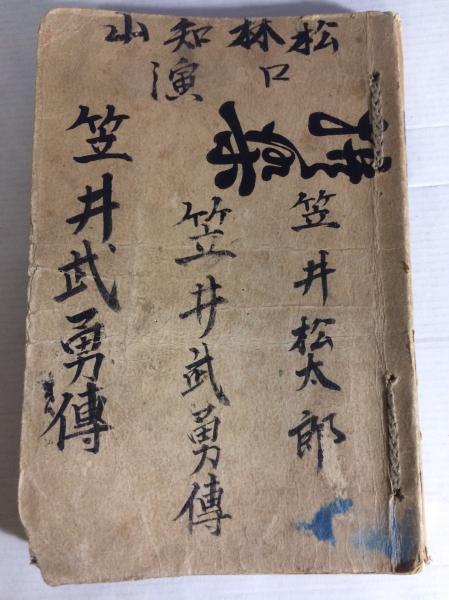 松林知山
口演
笠井松太郎
笠井武勇傳
笠井武勇傳